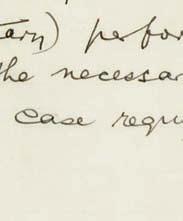 tary) perfor
the necessar
case requ